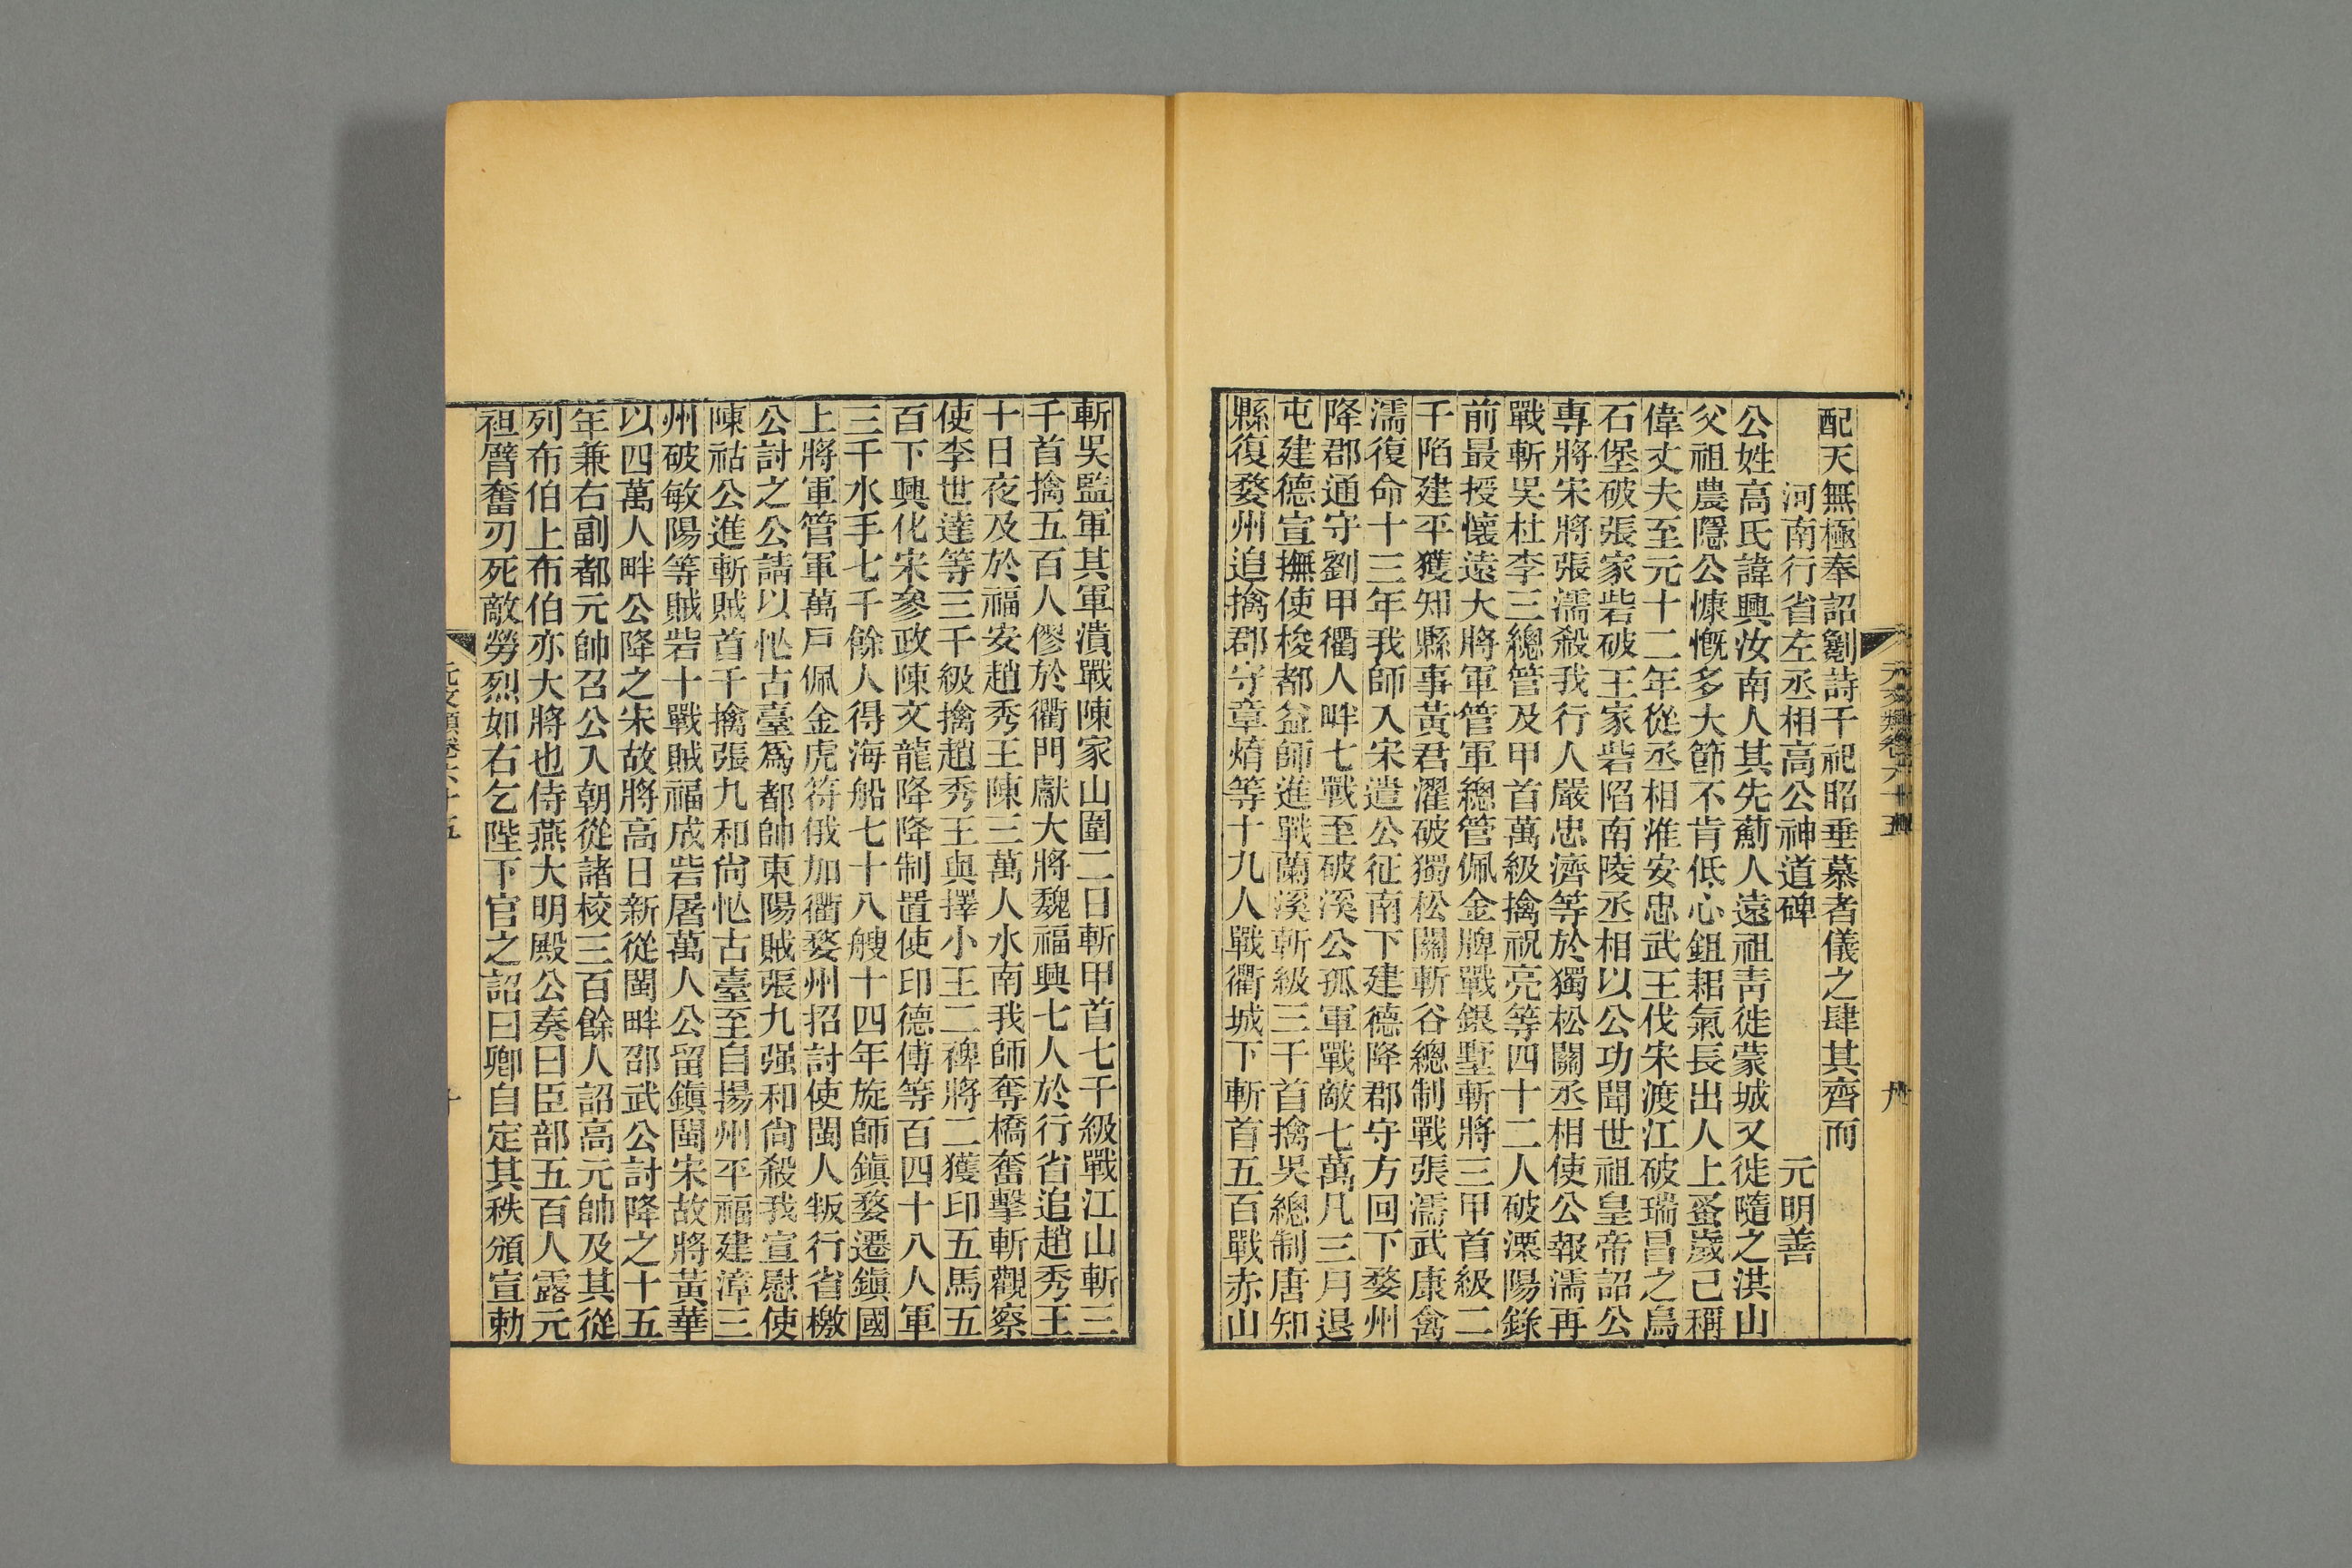 配天無極奉詔劖詩千祀昭垂慕者儀之肆其齊而
河南行省左丞相高公神道碑 元明善
公姓高氏諱興汝南人其先薊人遠祖青徙蒙城又徙隨之洪山
父祖農隱公慷慨多大節不肯低心鉏耜氣長出人上蚤歲己稱
偉丈夫至元十二年從丞相淮安忠武王伐宋渡江破瑞昌之烏
石堡破張家砦破王家砦陷南陵丞相以公功聞世祖皇帝詔公
專將宋將張濡殺我行人嚴忠濟等於獨松關丞相使公報濡再
戰斬吳杜李三總管及甲首萬級擒祝亮等四十二人破溧陽錄
前最授懷遠大將軍管軍總管佩金牌戰銀墅斬將三甲首級二
千陷建平獲知縣事黃君濯破獨松關斬谷總制戰張濡武康禽
濡復命十三年我師入宋遣公征南下建德降郡守方回下婺州
降郡通守劉甲衢人畔七戰至破溪公孤軍戰敵七萬凡三月退
屯建德宣撫使梭都益師進戰蘭溪斬級三千首擒吳總制唐知
縣復婺州追擒郡守章焴等十九人戰衢城下斬首五百戰赤山
斬吳監軍其軍潰戰陳家山圍二日斬甲首七千級戰江山斬三
千首擒五百人僇於衢門獻大將魏福興七人於行省追趙秀王
十日夜及於福安趙秀王陳三萬人水南我師奪橋奮擊斬觀察
使李世達等三千級擒趙秀王與擇小王二禆將二獲印五馬五
百下興化宋參政陳文龍降降制置使印德傅等百四十八人軍
三千水手七千餘人得海船七十八艘十四年旋師鎮婺遷鎮國
上將軍管軍萬戶佩金虎符俄加衢婺州招討使閩人叛行省檄
公討之公請以忙古臺爲都帥東陽賊張九强和尙殺我宣慰使
陳祜公進斬賊首千擒張九和尙忙古臺至自揚州平福建漳三
州破敏陽等賊砦十戰賊福成砦屠萬人公留鎮閩宋故將黃華
以四萬人畔公降之宋故將高日新從閩畔邵武公討降之十五
年兼右副都元帥召公入朝從諸校三百餘人詔高元帥及其從
列布伯上布伯亦大將也侍燕大明殿公奏曰臣部五百人露元
袒臂奮刃死敵勞烈如右乞陛下官之詔曰卿自定其秩頒宣勅
元文類卷六十五